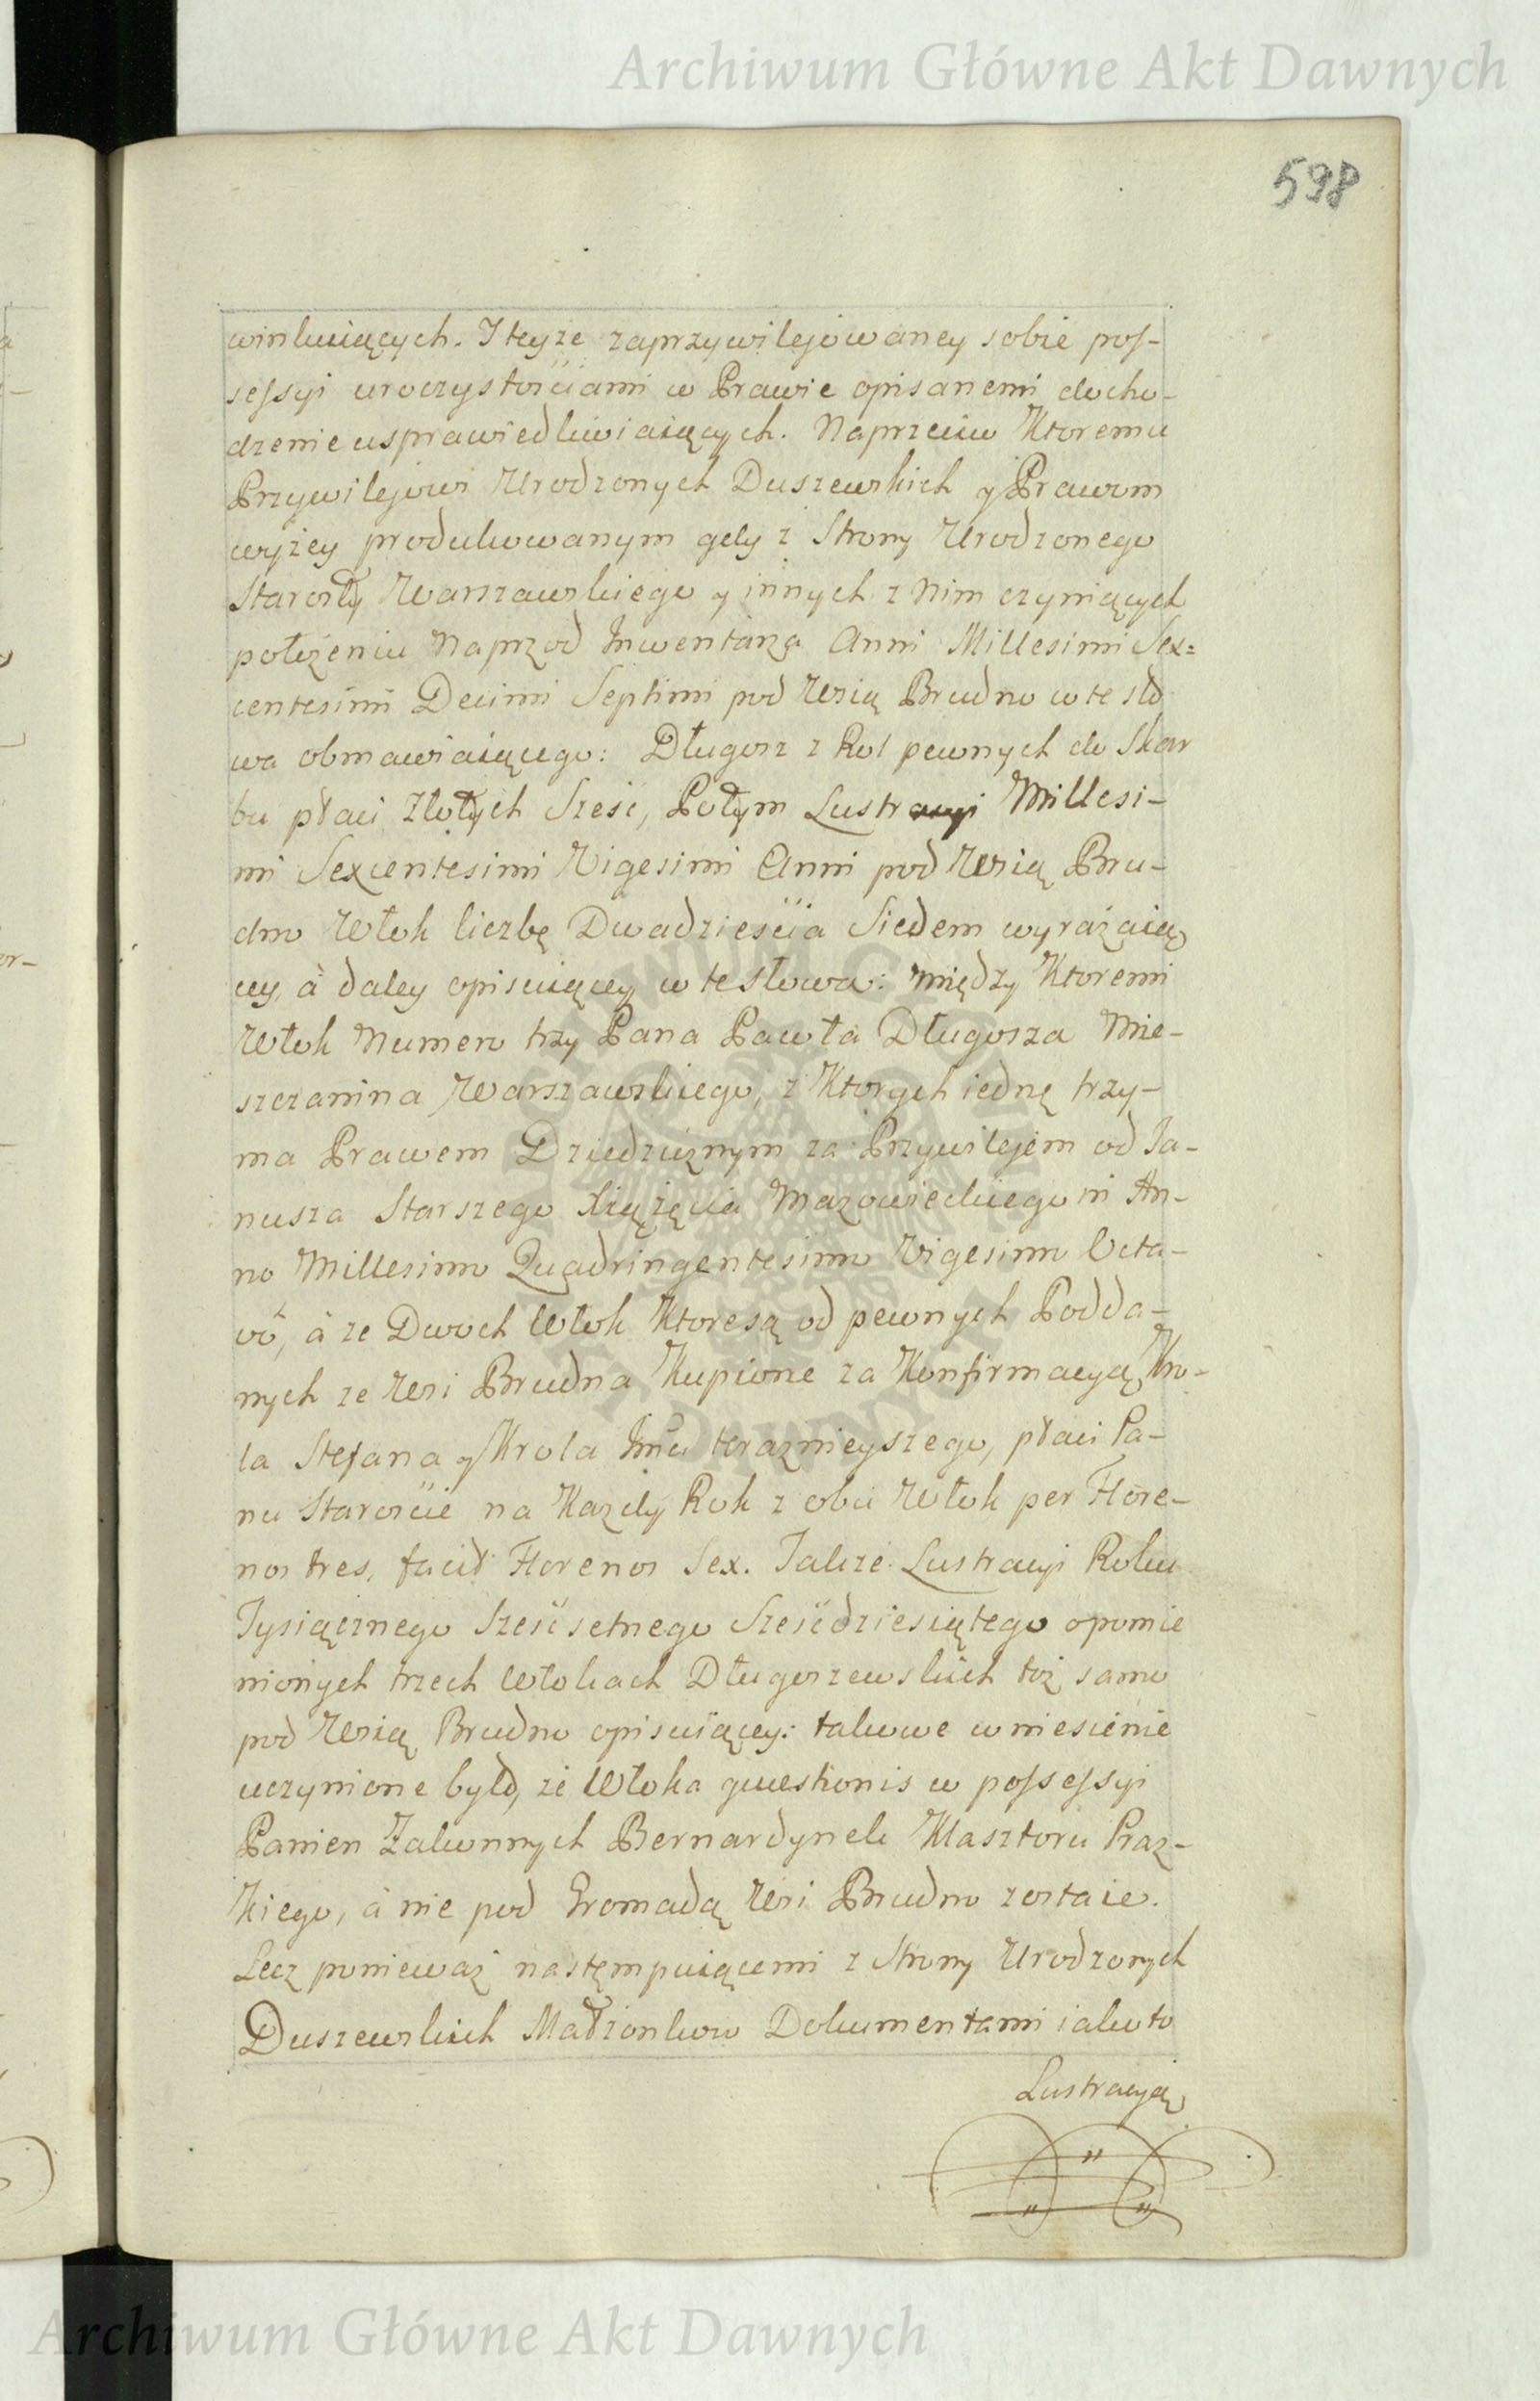 Archiwum Główne Akt Dawnych
598
winkuiących. I teyże zaprzywilejowaney sobie pos-
sessyi uroczystościami w Prawie opisanemi docho-
dzenie usprawiedliwiaiących. Naprzeciw Ktoremu
Przywilejowi Urodzonych Duszewskich y Prawom
wyżey produkowanym gdy z Strony Urodzonego
Starosty Warszawskiego y innych z Nim czyniących
położeniu Naprzod Inwentarza Anni Millesimi Sex=
centesimi Decimi Septimi pod Wsią Brudno w te sło
wa obmawiaiącego: Długosz z Rol pewnych do Skar
bu płaci Złotych Sześć, Potym Lustracyi Millesi-
mi Sexcentesimi Vigesimi Anni pod Wsią Bru-
dno Włok liczbę Dwadzieścia Siedem wyrażaią
cey, à daley opisuiącey w te słowa: między Ktoremi
Włok Numero trzy Pana Pawła Długosza Mie-
szczanina Warszawskiego, z Ktorych iednę trzy-
ma Prawem Dziedzicznym za Przywilejem od Ja-
nusza Starszego Xiążęcia Mazowieckiego in An-
no Millesimo Quadringentesimo Vigesimo Octa-
vo, à ze Dwoch Włok Ktore są od pewnych Podda-
nych ze Wsi Brudna Kupione za Konfirmacyą Kro-
la Stefana y Krola Jmci teraznieyszego, płaci Pa-
nu Staroście na Kazdy Rok z obu Włok per Flore-
nos tres, facit Florenos Sex. Takze Lustracyi Roku
Tysiącznego Sześćsetnego Sześćdziesiątego o pomie
nionych trzech Włokach Długoszewskich toż samo
pod Wsią Brudno opisuiącey: takowe wniesienie
uczynione było, że Włoka questionis w possessyi
Panien Zakonnych Bernardynek Klasztoru Praz-
kiego, à nie pod Gromadą Wsi Brudno zostaie.
Lecz ponieważ nastęmpuiącemi z Strony Urodzonych
Duszewskich Małżonkow Dokumentami iako to
Lustracyą
Archiwum Główne Akt Dawnych